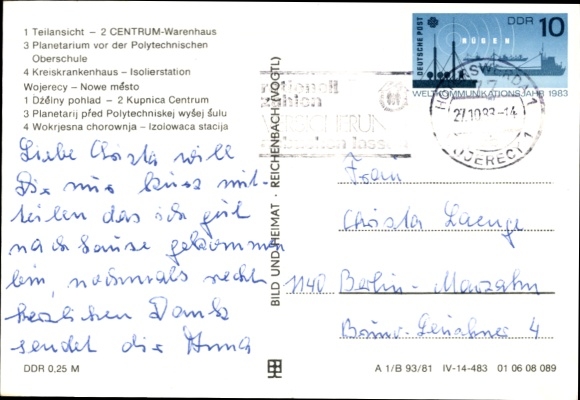 1 Teilansicht – 2 CENTRUM-Warenhaus
3 Planetarium vor der Polytechnischen
Oberschule
4 Kreiskrankenhaus – Isolierstation
Wojerecy – Nowe město
1 Dźělny pohlad – 2 Kupnica Centrum
3 Planetarij před Polytechniskej wyšej šulu
4 Wokrjesna chorownja – Izolowaca stacija
Liebe Christa will
Dir nur kurz mit-
teilen das ich gut
nach Hause gekommen
bin, nochmals recht
herzlichen Dank
sendet dir
DDR 0,25 M
BILD UND HEIMAT · REICHENBACH (VOGTL)
DEUTSCHE POST
DDR 10
RÜGEN
WELTKOMMUNIKATIONSJAHR 1983
rationell
zahlen
VERSICHERUN
abbuchen lassen
HOYERSWERDA 1
77
27.10.83-14
WOJERECY
Frau
Christa Laenge
1140 Berlin-Marzahn
4
A 1/B 93/81 IV-14-483 01 06 08 089